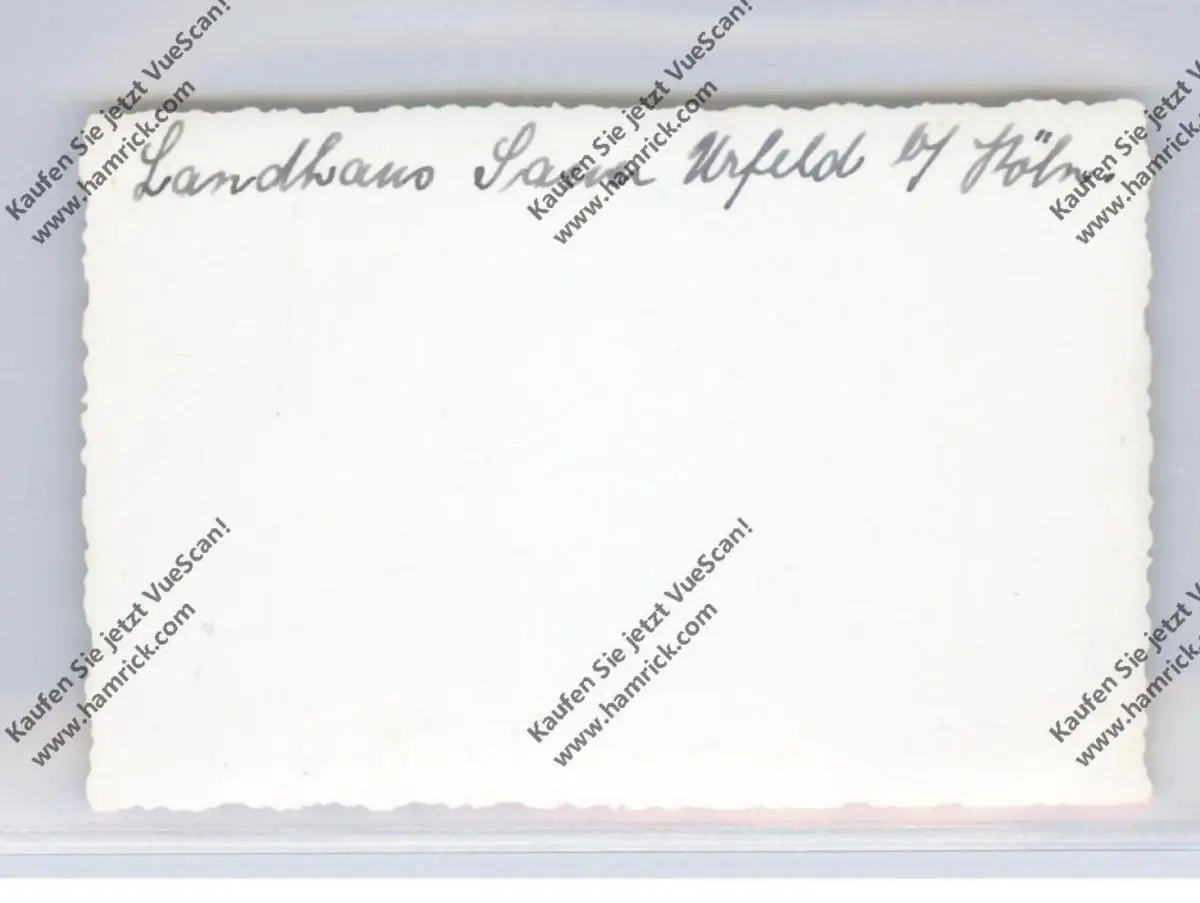 Landhaus Urfeld b/ Köln.
Kaufen Sie jetzt VueScan!
www.hamrick.com
Kaufen Sie jetzt VueScan!
www.hamrick.com
Kaufen Sie jetzt VueScan!
www.hamrick.com
Kaufen Sie jetzt VueScan!
www.hamrick.com
Kaufen Sie jetzt VueScan!
www.hamrick.com
Kaufen Sie jetzt VueScan!
www.hamrick.com